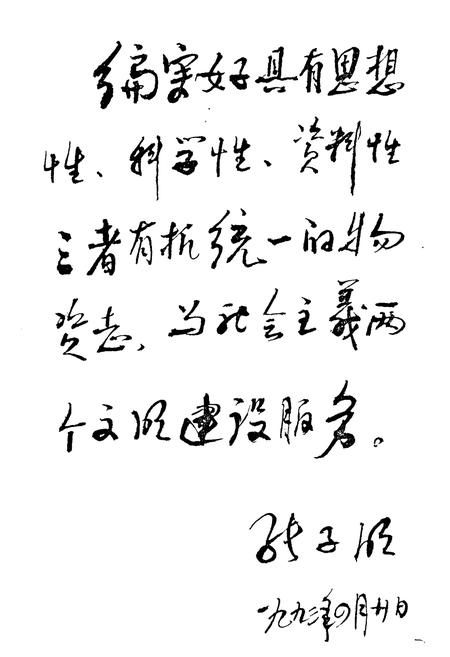 编写好具有思想
性、科学性、资料性
三者有机统一的物
资志，为社会主义两
个文明建设服务。
张子明
一九九三年四月廿日